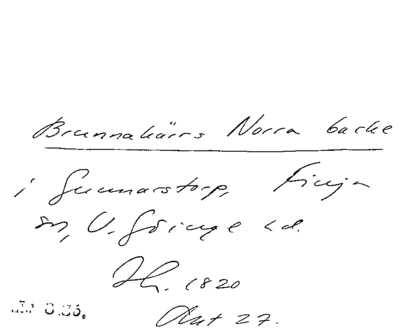 Brunnakärrs Norra backe
i Gunnarstorp, Finja
sn, V. Göinge hd.
1820
Akt 27.